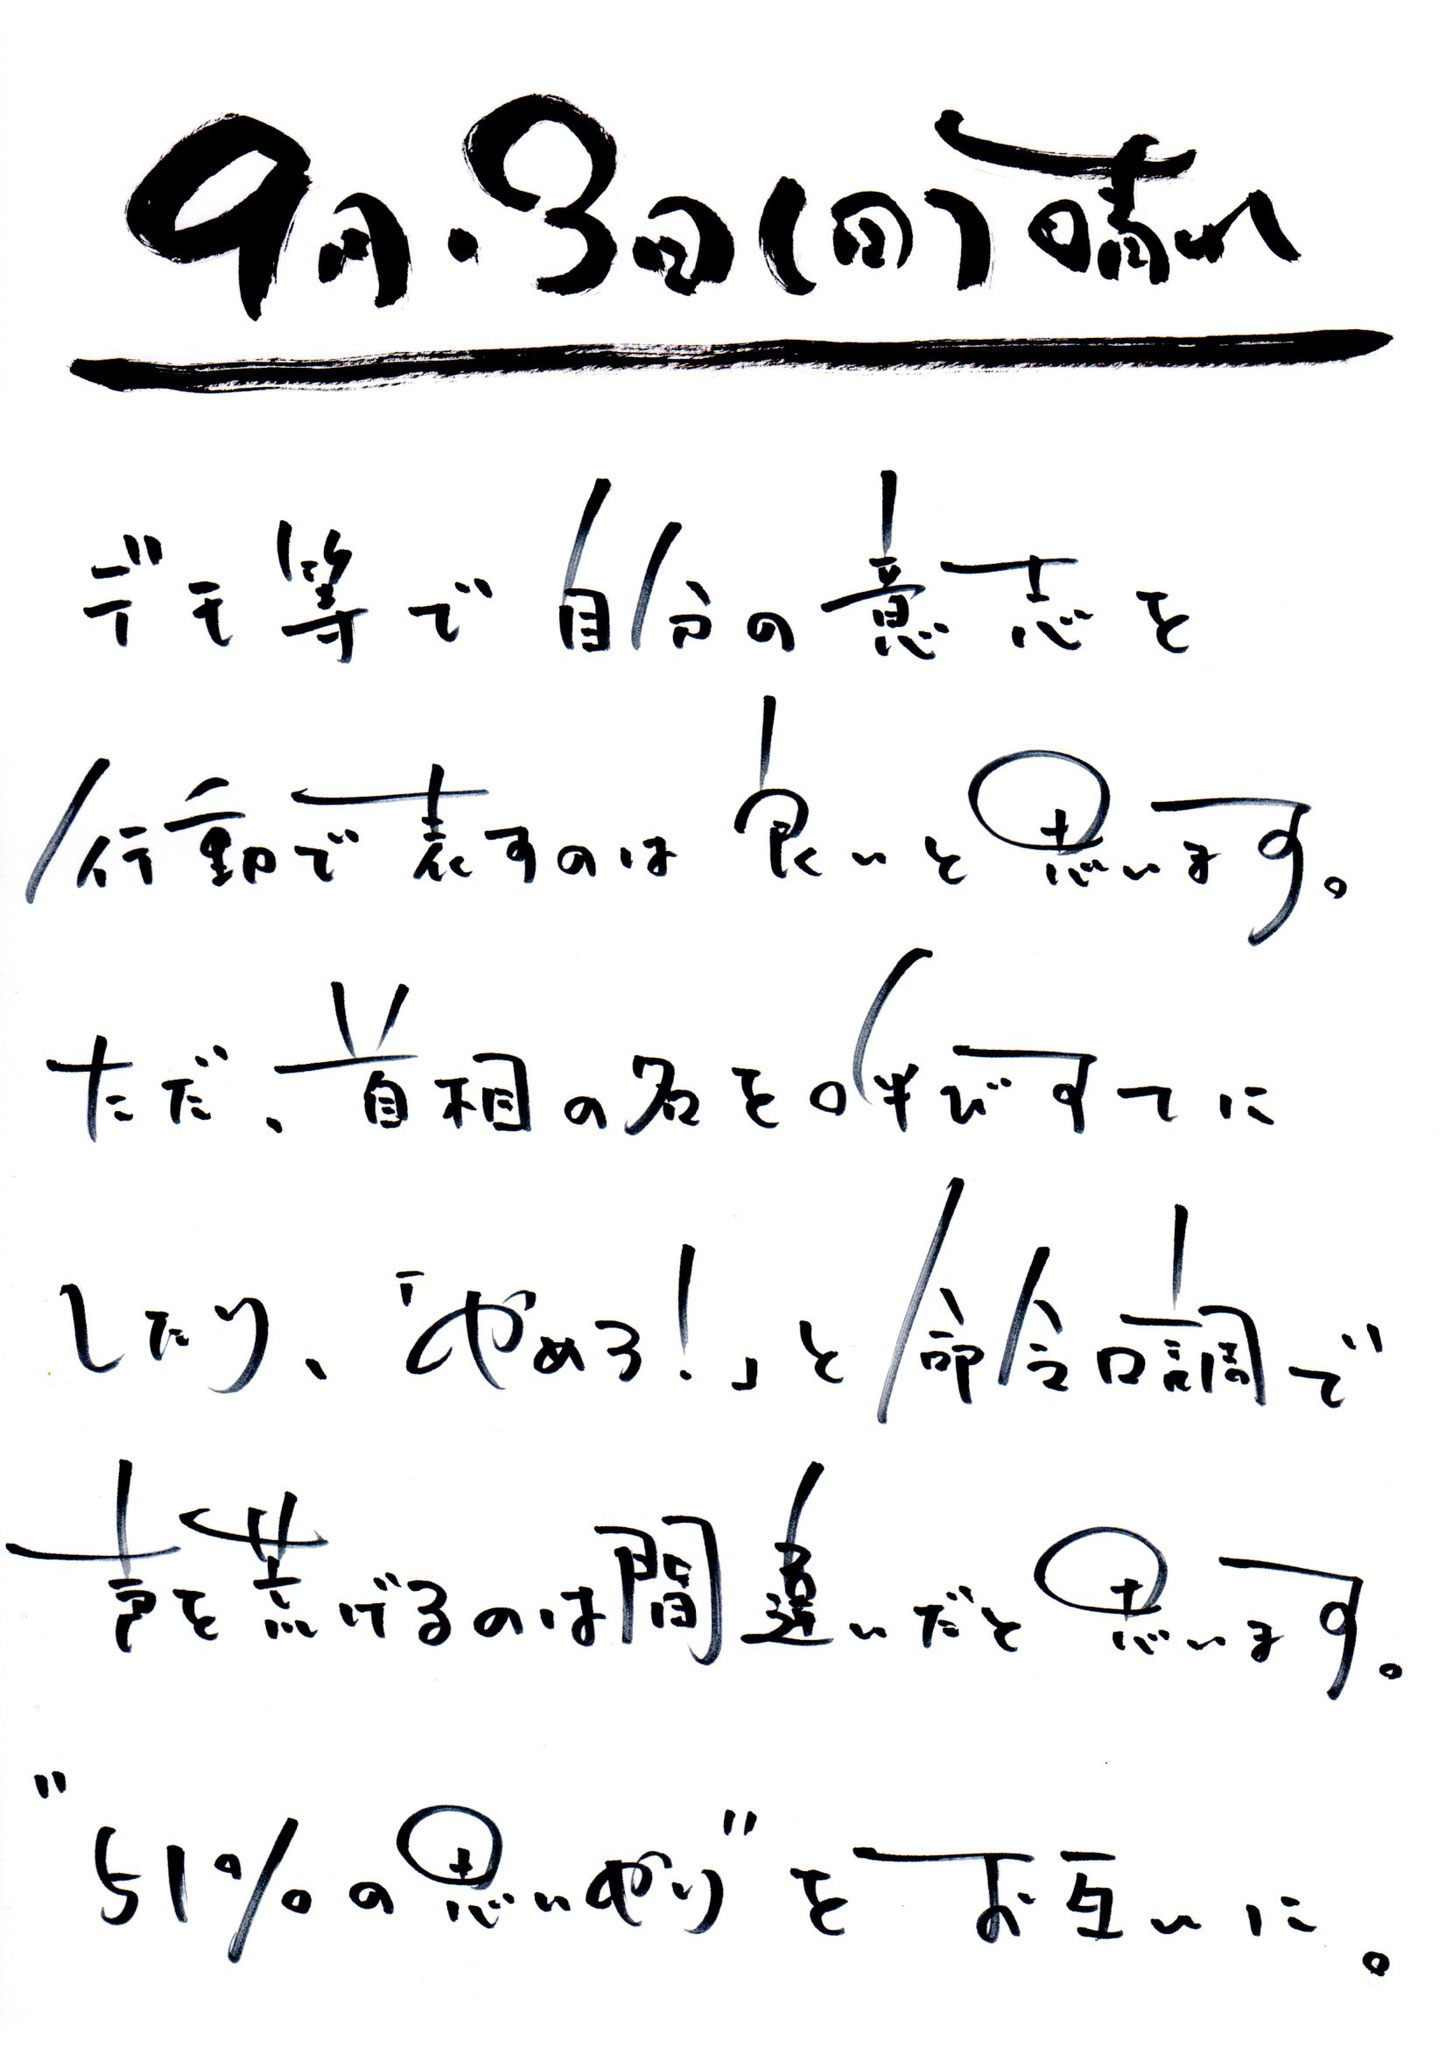 9月.3日(日)晴れ
デモ等で自分の意志を
行動で表すのは良いと思います。
ただ、首相の名を呼びすてに
したり、「やめろ!」と命令口調で
声を荒げるのは間違いだと思います。
"51%の思いやり"をお互いに。